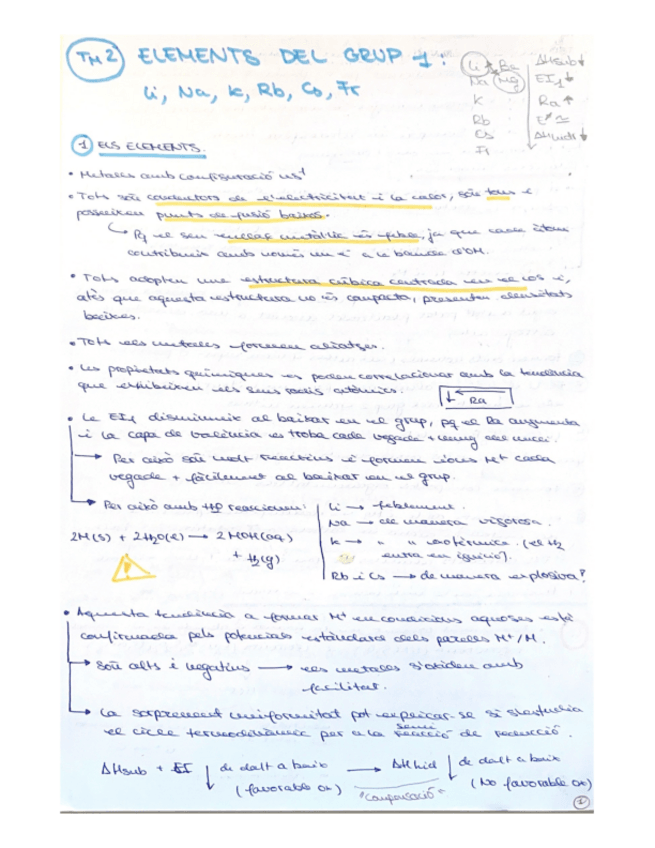 TM 2 ELEMENTS DEL GRUP 1:
Li, Na, K, Rb, Cs, Fr
Li Ra ΔHsub↓
Na Mg EI1↓
K Ra↑
Rb Eº≃
Cs ΔHhidr↓
Fr
1 ELS ELEMENTS.
• Metalls amb configuració ns1
• Tots són conductors de l'electricitat i la calor, són tous i
posseixen punts de fusió baixos.
Pq el seu enllaç metàl·lic és feble, ja que cada àtom
contribueix amb només un e- a la banda d'OM.
• Tots adopten una estructura cúbica centrada en el cos i,
atès que aquesta estructura no és compacta, presenten densitats
baixes.
• Tots els metalls formen aliatges.
• Les propietats químiques es poden correlacionar amb la tendència
que exhibeixen els seus radis atòmics.
Ra
• La EI1 disminueix al baixar en el grup, pq el Ra augmenta
i la capa de valència es troba cada vegada + lluny del nucli.
→ Per això són molt reactius i formen ions M+ cada
vegada + fàcilment al baixar en el grup.
→ Per això amb H2O reaccionen:
Li → feblement.
Na → de manera vigorosa.
K → " " exotèrmica (el H2
entra en ignició).
Rb i Cs → de manera explosiva?
2M(s) + 2H2O(l) → 2MOH(aq)
+ H2(g)
• Aquesta tendència a formar M+ en condicions aquoses està
confirmada pels potencials estàndard dels parells M+/M.
→ Són alts i negatius → els metalls s'oxiden amb
facilitat.
→ La sorprenent uniformitat pot explicar-se si s'estudia
el cicle termodinàmic per a la semi reacció de reducció.
ΔHsub + EI ↓ de dalt a baix → ΔHhid ↓ de dalt a baix
(favorable ox) "Compensació" (No favorable ox)
1